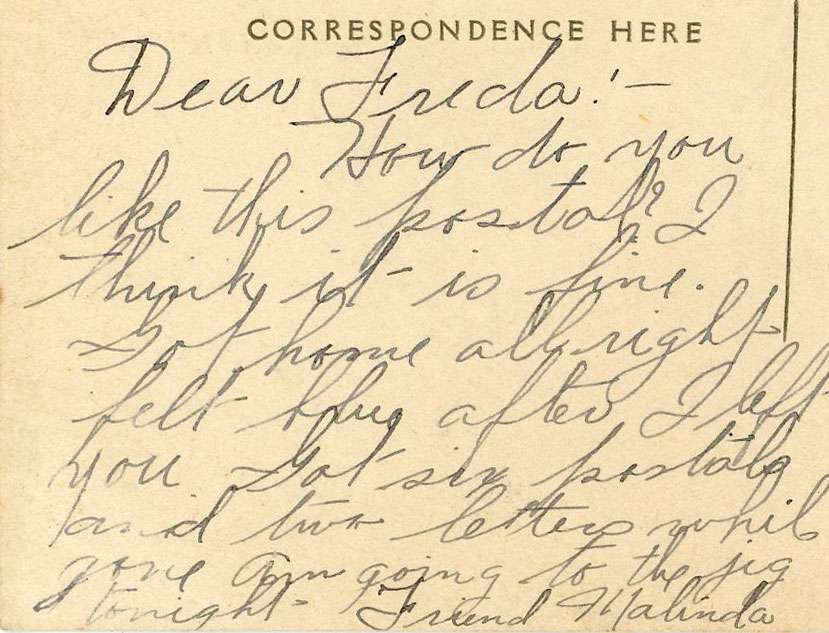 CORRESPONDENCE HERE
Dear Freda!-
How do you
like this postal? I
think it is fine.
Got home all right
felt blue after I left
you Got six postals
and two letters while
gone Am going to the jig
tonight- Friend Malinda